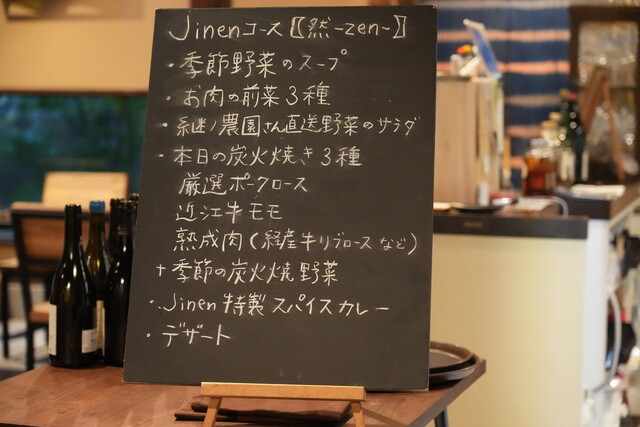 Jinenコース〖然 -zen-〗
・季節野菜のスープ
・お肉の前菜3種
・継ノ農園さん直送野菜のサラダ
・本日の炭火焼き3種
厳選ポークロース
近江牛モモ
熟成肉(経産牛リブロースなど)
+季節の炭火焼野菜
・Jinen特製スパイスカレー
・デザート